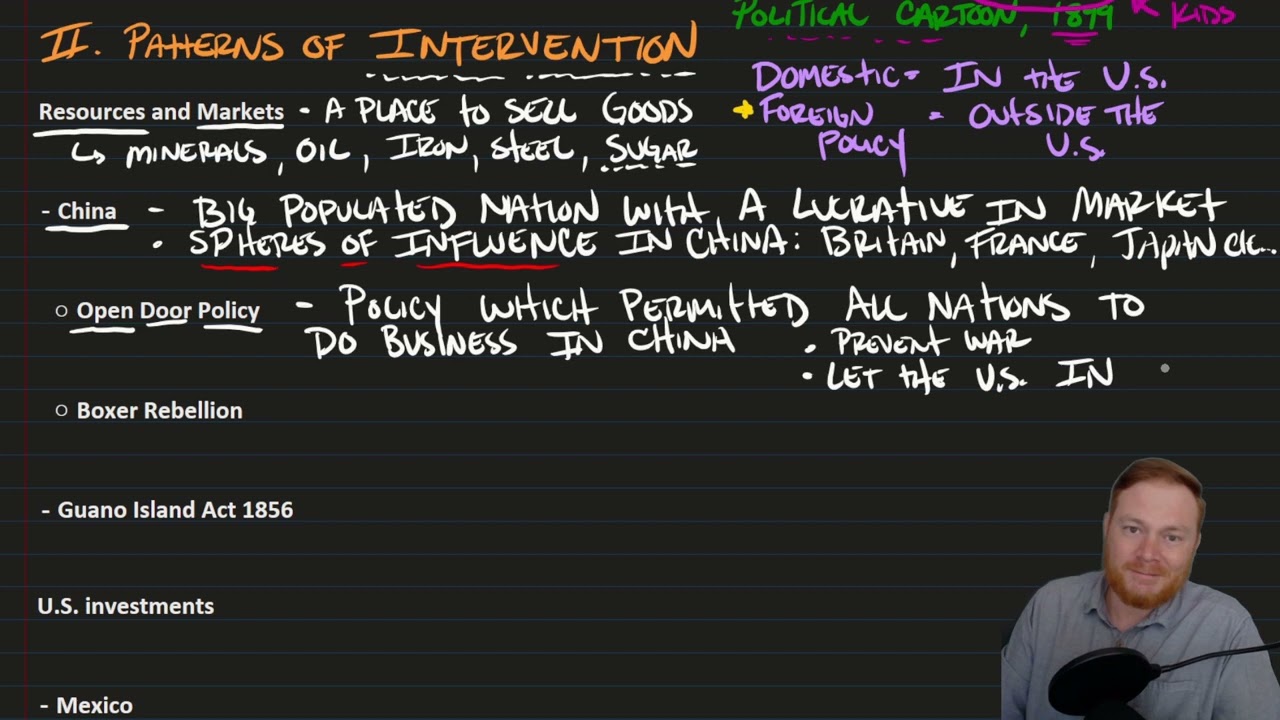 POLITICAL CARTOON, 1899 KIDS
II. PATTERNS OF INTERVENTION
DOMESTIC = IN THE U.S.
Resources and Markets - A PLACE TO SELL GOODS
FOREIGN = OUTSIDE THE
POLICY U.S.
MINERALS, OIL, IRON, STEEL, SUGAR
- China - BIG POPULATED NATION WITH A LUCRATIVE IN MARKET
• SPHERES OF INFLUENCE IN CHINA: BRITAIN, FRANCE, JAPAN etc...
○ Open Door Policy - POLICY WHICH PERMITTED ALL NATIONS TO
DO BUSINESS IN CHINA • PREVENT WAR
• LET THE U.S. IN
○ Boxer Rebellion
- Guano Island Act 1856
U.S. investments
- Mexico